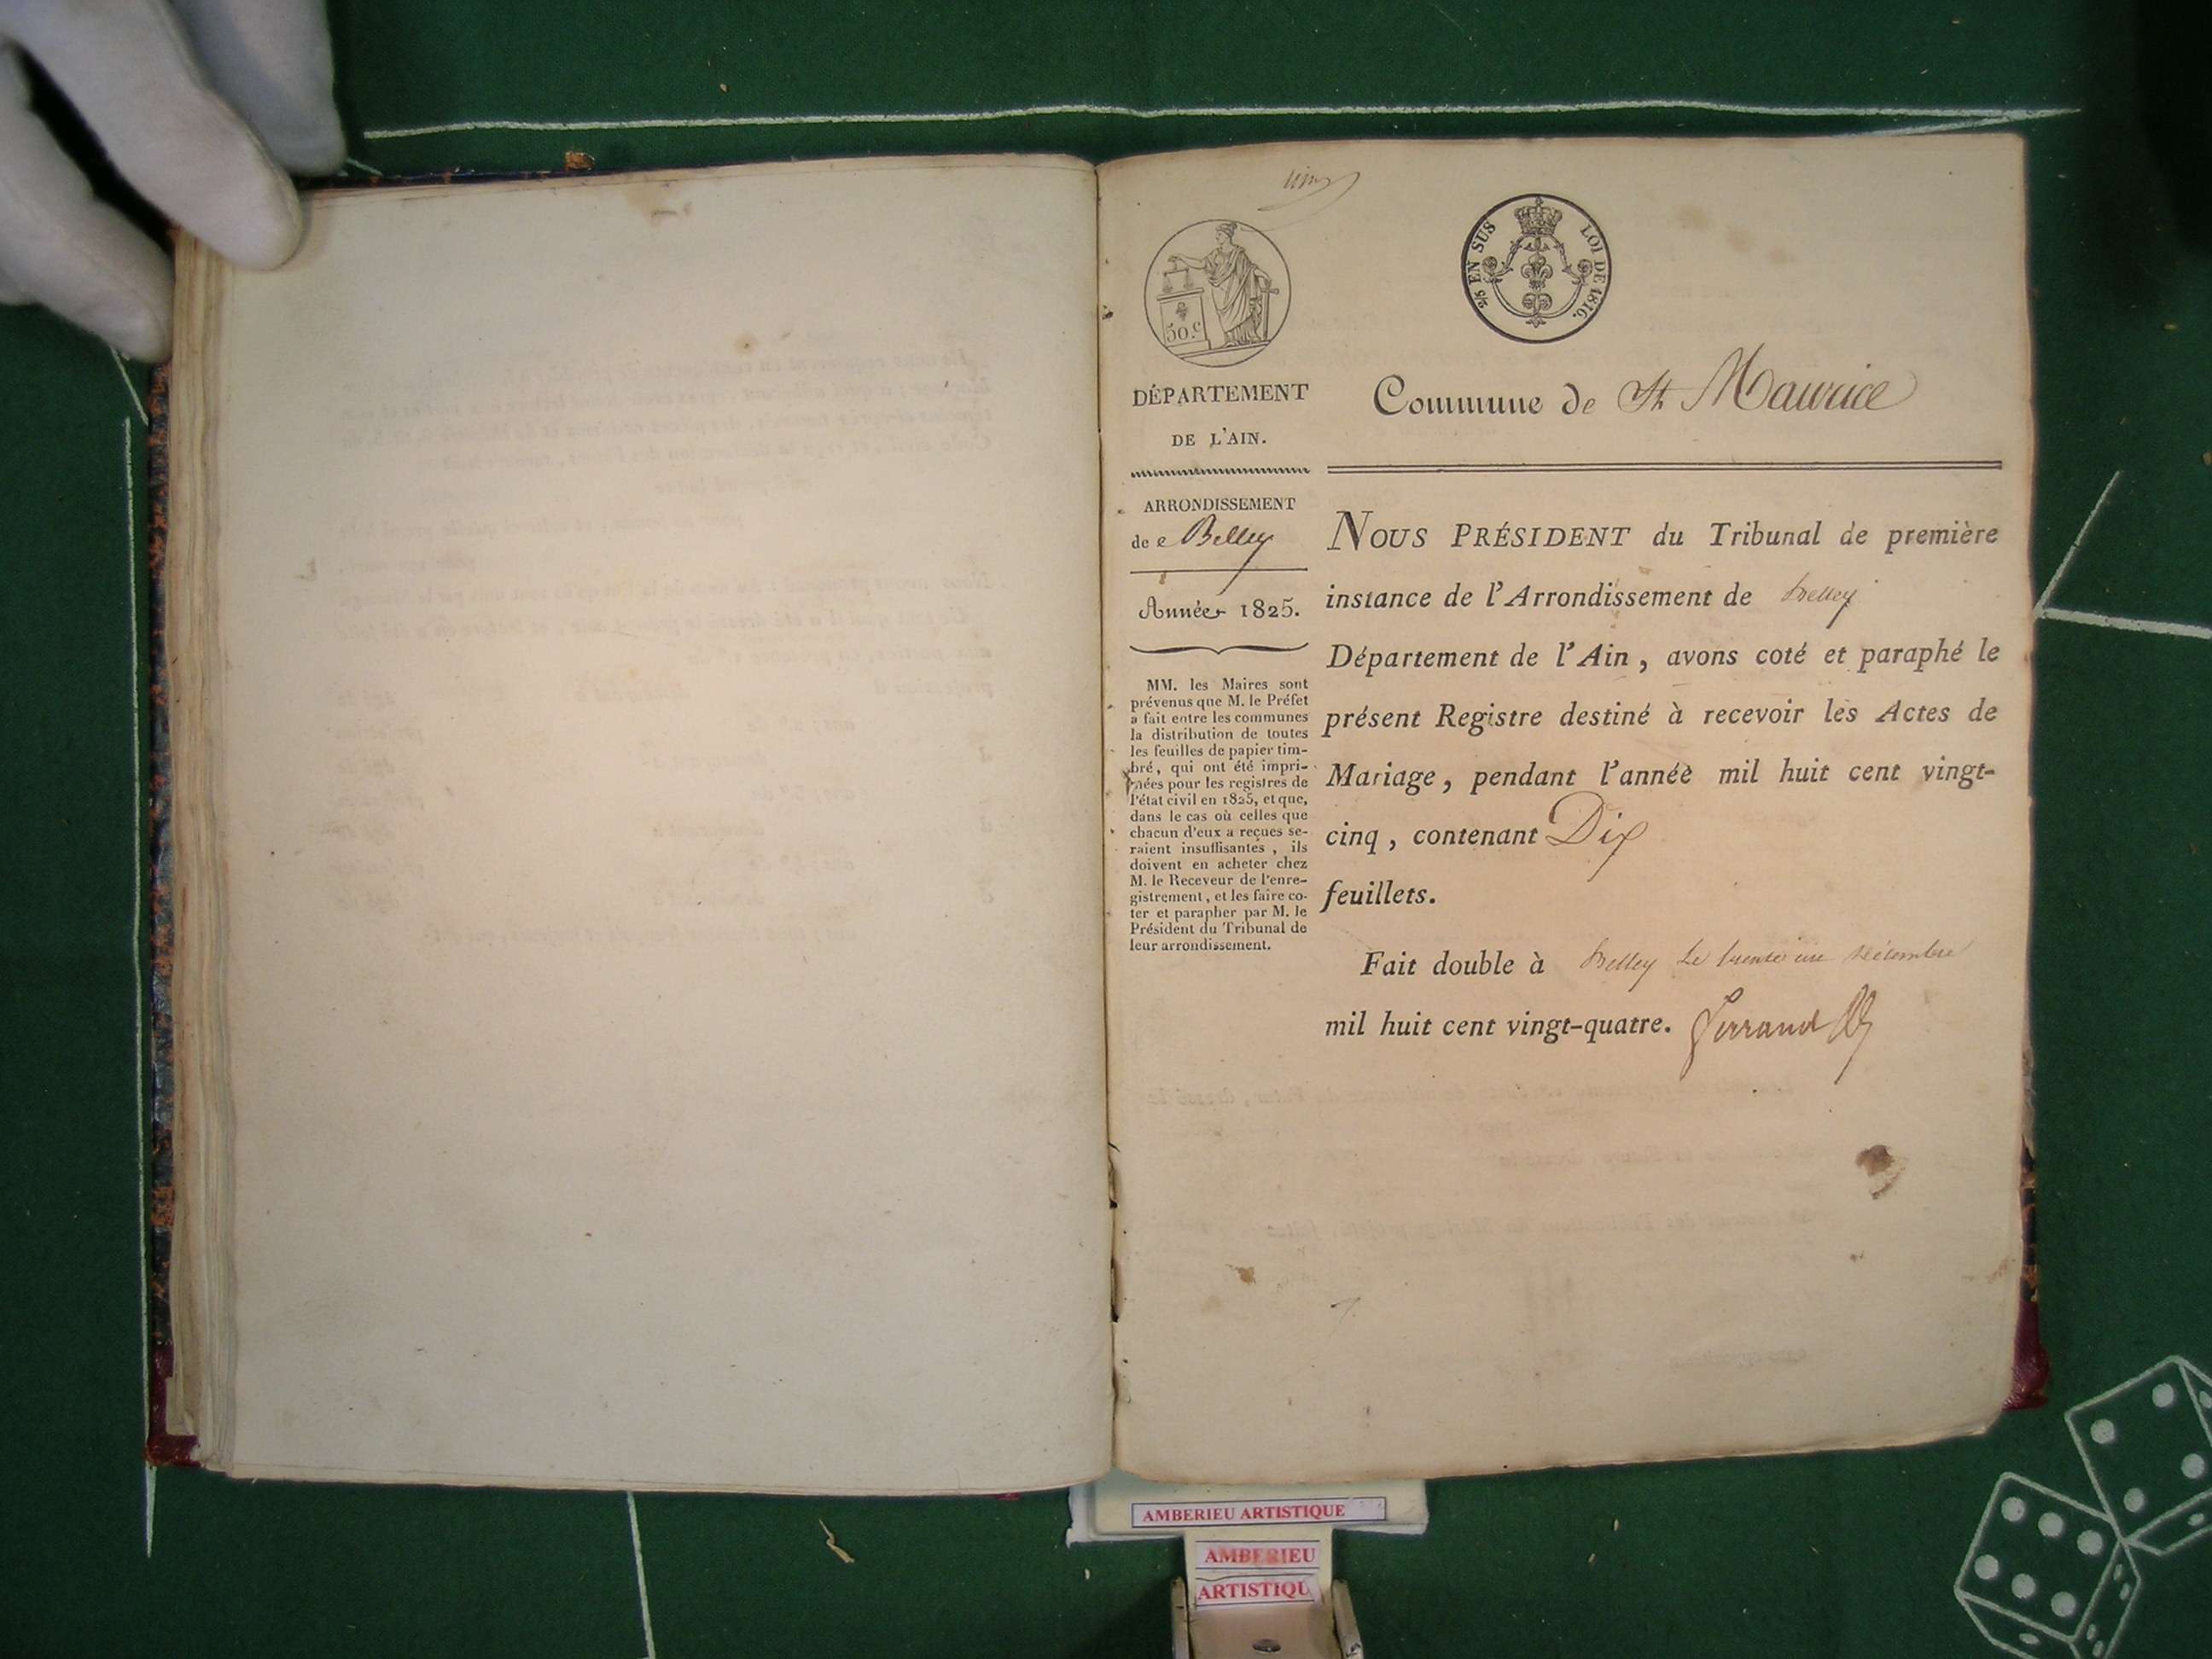 50.c
2/5 EN SUS LOI DE 1816.
DÉPARTEMENT
DE L'AIN.
ARRONDISSEMENT
de Belley
Année 1825.
MM. les Maires sont
prévenus que M. le Préfet
a fait entre les communes
la distribution de toutes
les feuilles de papier tim-
bré, qui ont été impri-
mées pour les registres de
l'état civil en 1825, et que,
dans le cas où celles que
chacun d'eux a reçues se-
raient insuffisantes, ils
doivent en acheter chez
M. le Receveur de l'enre-
gistrement, et les faire co-
ter et parapher par M. le
Président du Tribunal de
leur arrondissement.
Commune de St Maurice
NOUS PRÉSIDENT du Tribunal de première
instance de l'Arrondissement de Belley
Département de l'Ain, avons coté et paraphé le
présent Registre destiné à recevoir les Actes de
Mariage, pendant l'année mil huit cent vingt-
cinq, contenant Dix
feuillets.
Fait double à Belley Le trente un Décembre
mil huit cent vingt-quatre. Ferrand
AMBERIEU ARTISTIQUE
AMBERIEU
ARTISTIQU